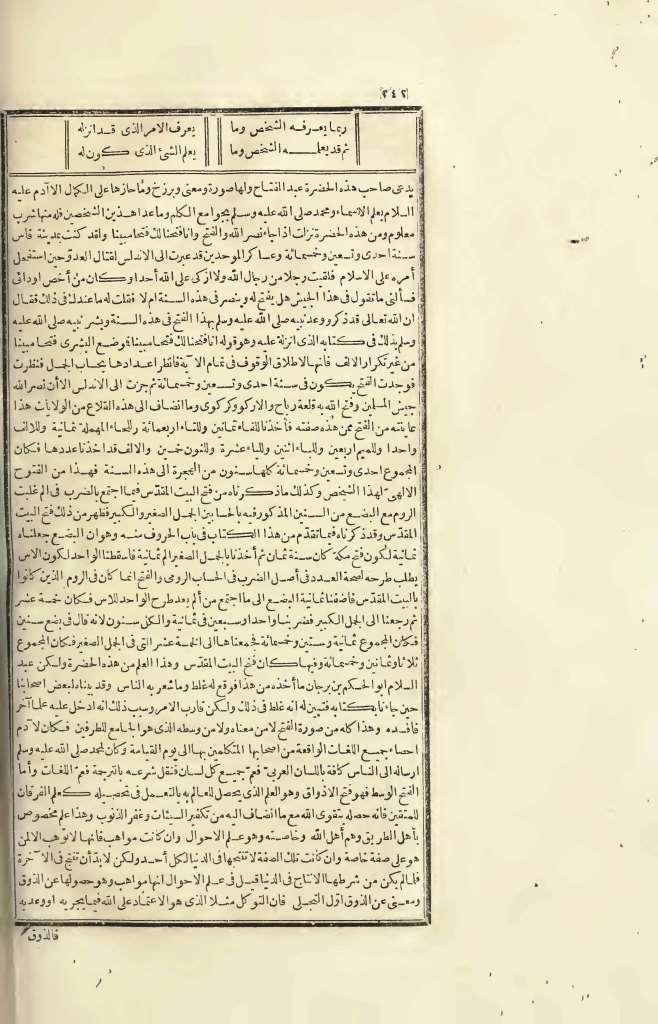 ﴿٢٤٢﴾
ربما يعرفه الشخص وما يعرف الامر الذى قد انزله
ثم قد يعلمه الشخص وما يعلم الشئ الذى كون له
يدعى صاحب هذه الحضرة عبد الفتاح ولها صورة ومعنى وبرزخ وما حازها على الكمال الا آدم عليه
السلام بعلم الاسماء ومحمد صلى الله عليه وسلم بجوامع الكلم وما عدا هذين الشخصين فله منها شرب
معلوم ومن هذه الحضرة نزلت اذا جاء نصر الله والفتح وانا فتحنا لك فتحا مبينا ولقد كنت بمدينة فاس
سنة احدى وتسعين وخمسمائة وعساكر الموحدين قد عبرت الى الاندلس لقتال العدو حين استفحل
أمره على الاسلام فلقيت رجلا من رجال الله ولا ازكى على الله أحدا وكان من أخص اودائى
فسألنى ما تقول فى هذا الجيش هل يفتح له وينصر فى هذه السنة ام لا فقلت له ما عندك فى ذلك فقال
ان الله تعالى قد ذكر ووعد نبيه صلى الله عليه وسلم بهذا الفتح فى هذه السنة وبشر نبيه صلى الله عليه
وسلم بذلك فى كتابه الذى انزله عليه وهو قوله انا فتحنا لك فتحا مبينا فموضع البشرى فتحا مبينا
من غير تكرار الالف فانها لاطلاق الوقوف فى تمام الآية فانظر اعدادها بحساب الجمل فنظرت
فوجدت الفتح يكون فى سنة احدى وتسعين وخمسمائة ثم جزت الى الاندلس الا أن نصر الله
جيش المسلمين وفتح الله به قلعة رباح والاركو وكركوى وما انضاف الى هذه القلاع من الولايات هذا
عاينته من الفتح ممن هذه صفته فأخذنا للفاء ثمانين وللتاء اربعمائة وللحاء المهملة ثمانية وللالف
واحدا وللميم اربعين وللباء اثنين وللياء عشرة وللنون خمسين والالف قد اخذنا عددها فكان
المجموع احدى وتسعين وخمسمائة كلها سنون من الهجرة الى هذه السنة فهذا من الفتوح
الالهى لهذا الشخص وكذلك ما ذكرناه من فتح البيت المقدس فيما اجتمع بالضرب فى الم غلبت
الروم مع البضع من السنين المذكور فيه بالحسابين الجمل الصغير والكبير فظهر من ذلك فتح البيت
المقدس وقد ذكرناه فيما تقدم من هذا الكتاب فى باب الحروف منه وهو ان البضع جعلناه
ثمانية لكون فتح مكة كان سنة ثمان ثم أخذنا بالجمل الصغير الم ثمانية فاسقطنا الواحد لكون الاس
يطلب طرحه لصحة العدد فى أصل الضرب فى الحساب الرومى والفتح انما كان فى الروم الذين كانوا
بالبيت المقدس فاضفنا ثمانية البضع الى ما اجتمع من ألم بعد طرح الواحد للاس فكان خمسة عشر
ثم رجعنا الى الجمل الكبير فضربنا واحدا وسبعين فى ثمانية والكل سنون لانه قال فى بضع سنين
فكان المجموع ثمانية وستين وخمسمائة فجمعناها الى الخمسة عشر التى فى الجمل الصغير فكان المجموع
ثلاثا وثمانين وخمسمائة وفيها كان فتح البيت المقدس وهذا العلم من هذه الحضرة ولكن عبد
السلام ابو الحكم بن برجان ما أخذه من هذا فوقع له غلط وما شعر به الناس وقد بيناه لبعض اصحابنا
حين جاءنا بكتابه فتبين له انه غلط فى ذلك ولكن قارب الامر وسبب ذلك انه ادخل عليه علما آخر
فأفسده وهذا كله من صورة الفتح لا من معناه ولا من وسطه الذى هو الجامع للطرفين فكان لآدم
احصاء جميع اللغات الواقعة من اصحابها المتكلمين بها الى يوم القيامة وكان لمحمد صلى الله عليه وسلم
ارساله الى الناس كافة باللسان العربى فعم جميع كل لسان فنقل شرعه بالترجمة فعم اللغات وأما
الفتح الوسط فهو فتح الاذواق وهو العلم الذى يحصل للعالم به بالتعمل فى تحصيله كعلم الفرقان
للمتقين فانه حصله بتقوى الله مع ما انضاف اليه من تكفير السيئات وغفر الذنوب وهذا علم مخصوص
بأهل الطريق وهم أهل الله وخاصته وهو علم الاحوال وان كانت مواهب فانها لا توهب الا لمن
هو على صفة خاصة وان كانت تلك الصفة لا تنتجها فى الدنيا لكل أحد ولكن لابد أن تنتج فى الآخرة
فلما لم يكن من شرطها الانتاج فى الدنيا قيل فى علم الاحوال انها مواهب وهو حصولها عن الذوق
ومعنى عن الذوق اول التجلى فان التوكل مثلا الذى هو الاعتماد على الله فيما يجريه او وعد به
فالذوق